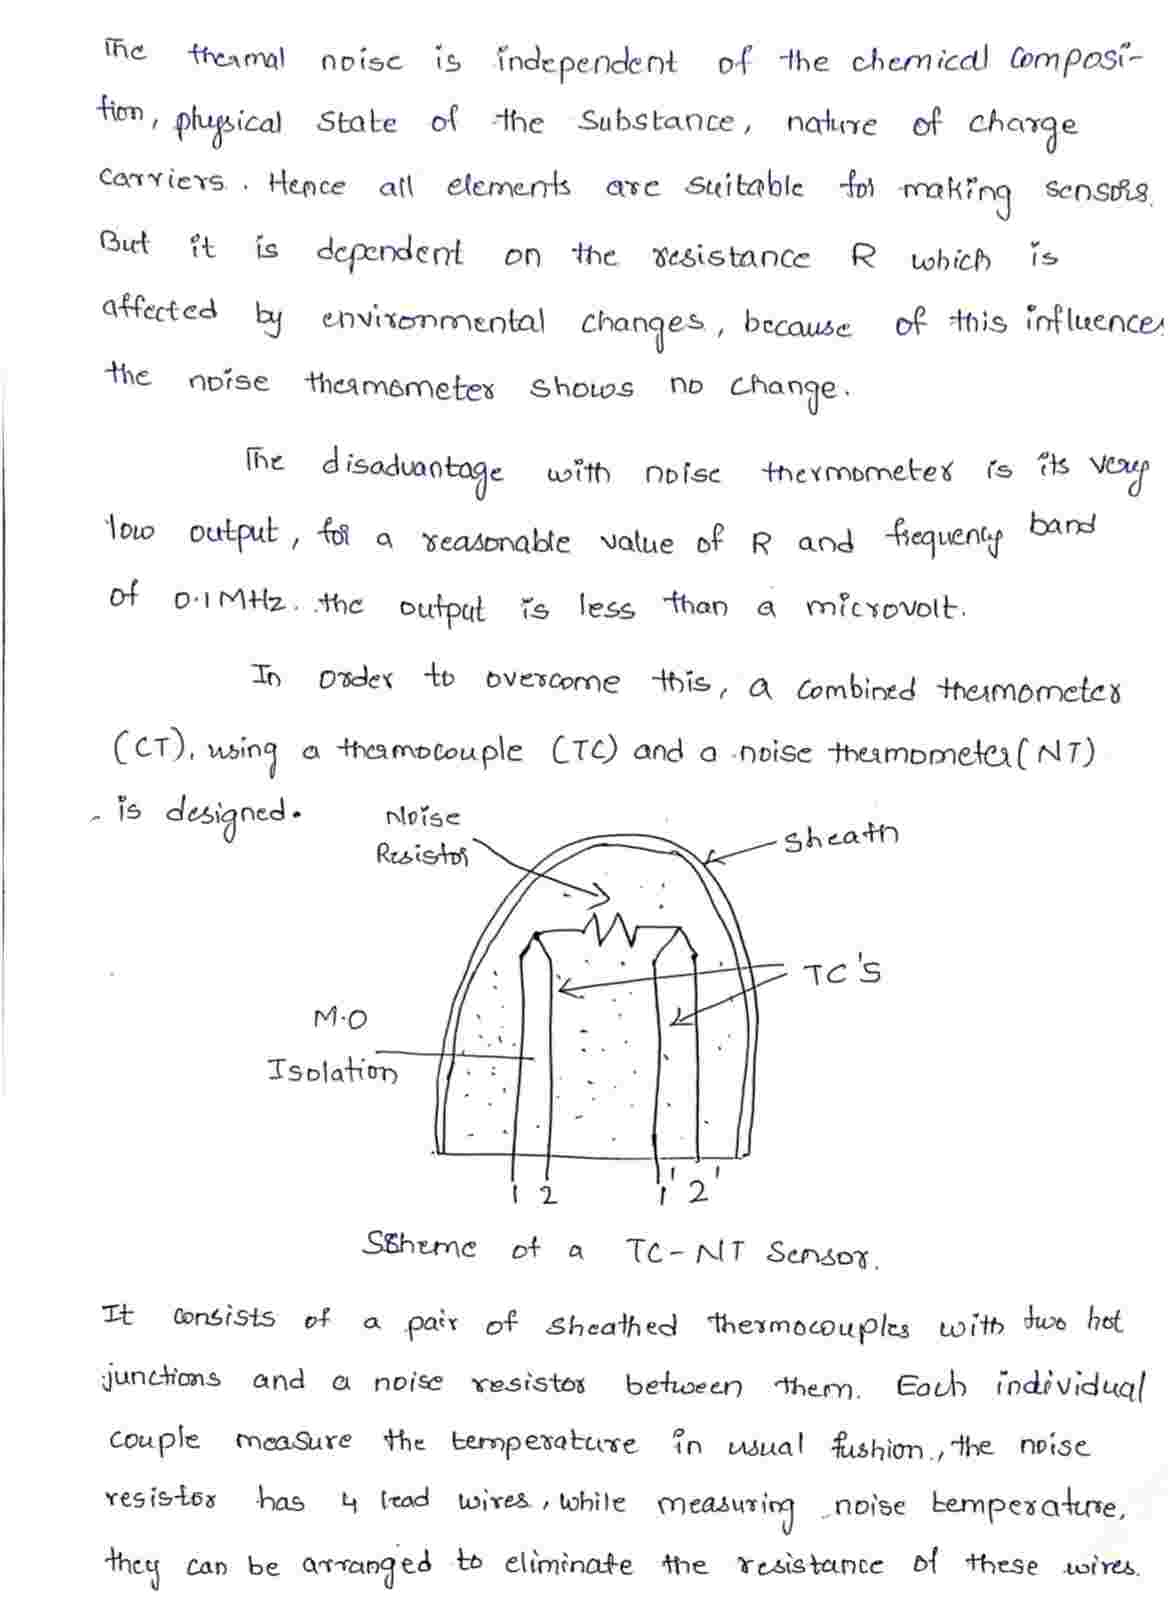 The thermal noise is independent of the chemical composi-
tion, physical state of the substance, nature of charge
carriers. Hence all elements are suitable for making sensors.
But it is dependent on the resistance R which is
affected by environmental changes, because of this influence
the noise thermometer shows no change.
The disadvantage with noise thermometer is its very
low output, for a reasonable value of R and frequency band
of 0.1 MHz. the output is less than a microvolt.
In order to overcome this, a combined thermometer
(CT), using a thermocouple (TC) and a noise thermometer (NT)
is designed.
Noise
Resistor
Sheath
TC'S
M.O
Isolation
1 2 1' 2'
Scheme of a TC-NT Sensor.
It consists of a pair of sheathed thermocouples with two hot
junctions and a noise resistor between them. Each individual
couple measure the temperature in usual fushion, the noise
resistor has 4 lead wires, while measuring noise temperature,
they can be arranged to eliminate the resistance of these wires.